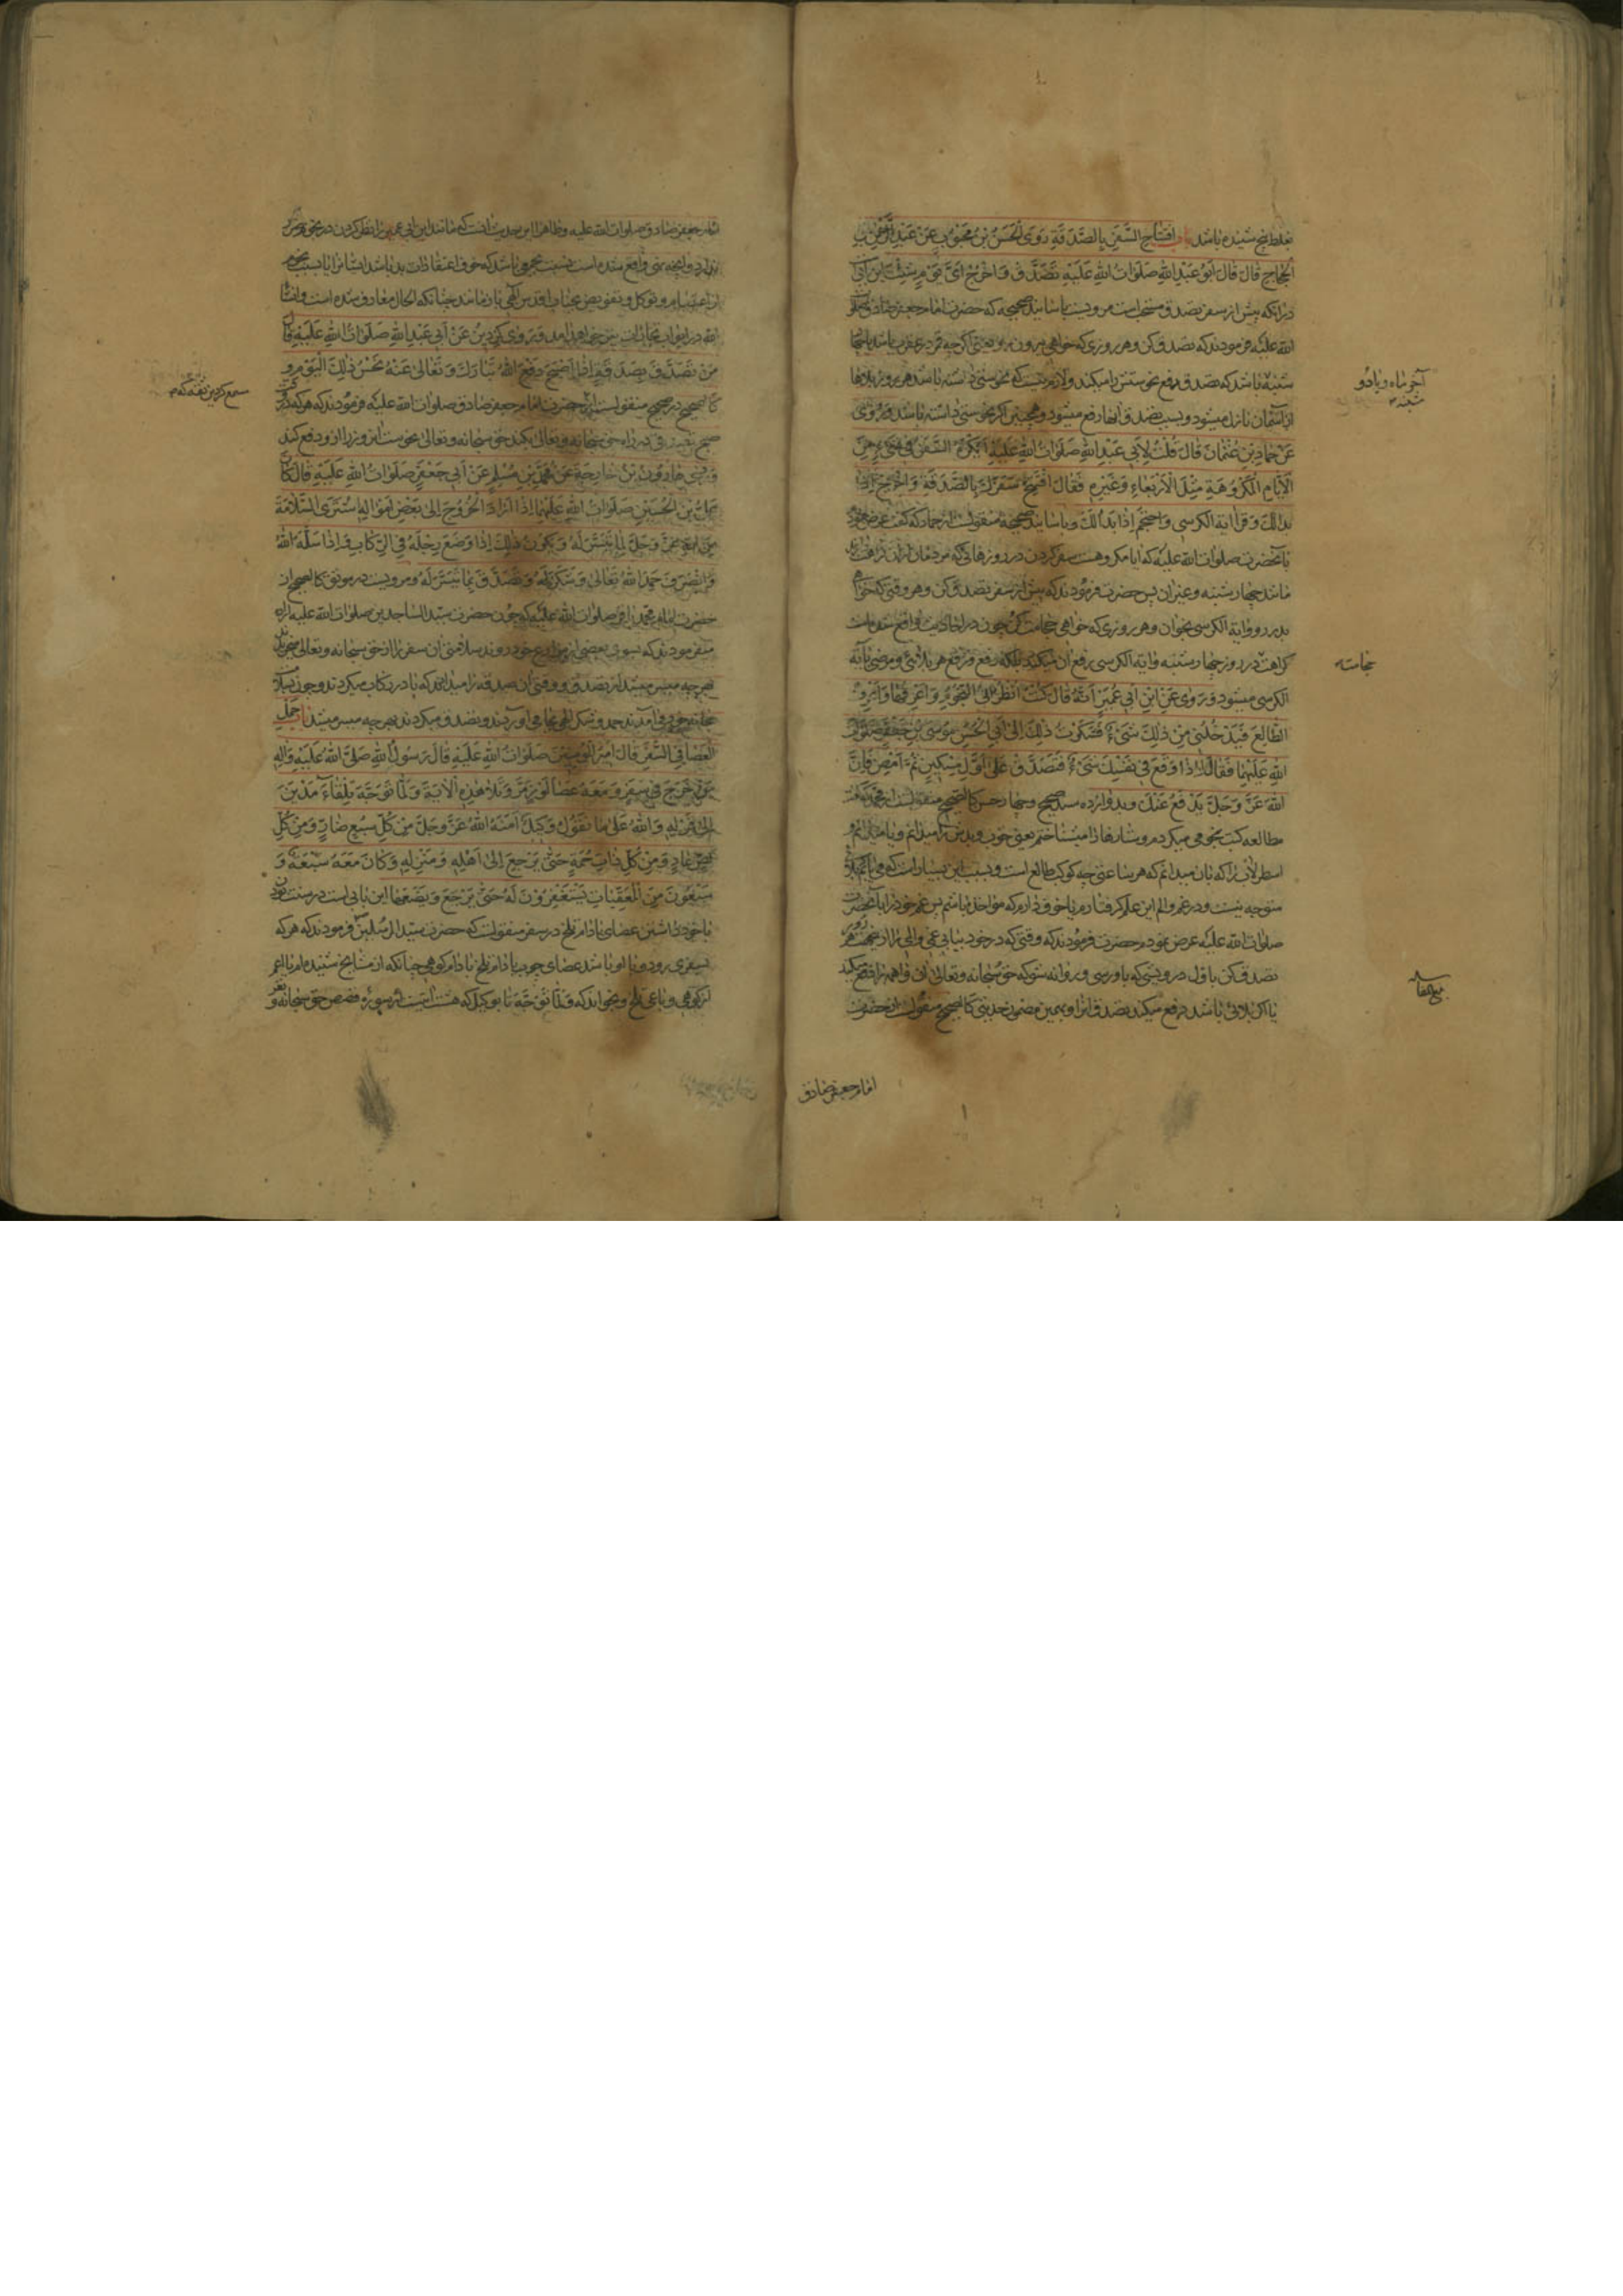 غلط نسخ شنیده باشد باب افتتاح السفر بالصدقة روی الحسن بن محبوب عن عبد الرحمن بن
الحجاج قال قال ابو عبد الله صلوات الله علیه تصدق و اخرج ای یوم شئت این بابی
در آنکه پیش از سفر تصدق مستحب است مرویست باسانید صحیحه که حضرت امام جعفر صادق صلوات
الله علیه فرمودند که تصدق کن و هر روزی که خواهی بیرون رو یعنی اگر چه قمر در عقرب باشد یا
شنبه باشد که تصدق دفع نحوستش را میکند و لازم نیست که نحوستی داشته باشد هر روز بلاها
از آسمان نازل میشود و بسبب تصدق آنها رفع میشود و همچنین اگر نحوستی داشته باشد و روی
عن حماد بن عثمان قال قلت لابی عبد الله صلوات الله علیه ایکره السفر فی شیء من
الایام المکروهة مثل الاربعاء و غیره فقال افتتح سفرک بالصدقة و اخرج اذا
بدا لک و اقرا آیة الکرسی و احتجم اذا بدا لک و باسانید صحیحه منقولست از حماد که گفت عرض نمودم
بآنحضرت صلوات الله علیه که ایا مکروهست سفر کردن در روزهائی که مردمان از آن کراهت دارند
مانند چهارشنبه و غیر آن پس حضرت فرمودند که پیش از سفر تصدق کن و هر وقتی که خواهی
بدر رو و آیة الکرسی بخوان و هر روزی که خواهی حجامت کن چون در احادیث واقع شده است
کراهت در روز چهارشنبه و آیة الکرسی رفع آن میکند بلکه رفع هر بلائی و مرضی بآیة
الکرسی میشود و روی عن ابن ابی عمیر انه قال کنت انظر فی النجوم و اعرفها و اعرف
الطالع فیدخلنی من ذلک شیء فشکوت ذلک الی ابی الحسن موسی بن جعفر صلوات
الله علیهما فقال اذا وقع فی نفسک شیء فتصدق علی اول مسکین ثم امض فان
الله عز و جل یدفع عنک و بدوازده سند صحیح و چهار حسن کالصحیح منقولست از محمد که
مطالعه کتب نجوم میکردم و ستارها را میشناختم یعنی خوب و بدش را میدانم و یا
اسطرلاب را که بآن میدانم که هر ساعتی چه کوکب طالع است و بسبب این بسیار است که مرا
متوجه نیست و در غم و الم این علم گرفتارم یا خوف دارم که مؤاخذ باشم پس غم خود را بآنحضرت
صلوات الله علیه عرض نمودم حضرت فرمودند که وقتی که در خود بیابی غمی و المی را از
تصدق کن باول درویشی که باو رسی و روانه شو که حق سبحانه و تعالی آن واهمه را رفع میکند
یا اگر بلائی باشد دفع میکند بتصدق از تو و بهمین مضمون حدیثی کالصحیح منقولست از حضرت
امام جعفر صادق
آخر ماه و یا دو
شنبه
حجامت
بلغ مقابله
امام جعفر صادق صلوات الله علیه و ظاهرا این حدیث آنست که مانند ابن ابی عمیر را نظر کردن در نجوم ضرر
ندارد و آنچه نهی واقع شده است نسبت بجمعی باشد که خوف اعتقادات بد باشد ایشانرا یا بسبب نجوم
از اعتصام و توکل و تفویض بجناب اقدس الهی باز مانند چنانکه الحال متعارف شده است و انشاء
الله در ابواب نیز خواهد آمد و روی کردین عن ابی عبد الله صلوات الله علیه قال
من تصدق بصدقة اذا اصبح دفع الله تبارک و تعالی عنه نحس ذلک الیوم و
کالصحیح در صحیح منقولست از حضرت امام جعفر صادق صلوات الله علیه فرمودند که هر که در
صبح تصدقی در راه حق سبحانه و تعالی بکند حق سبحانه و تعالی نحوست آن روز را از او دفع کند
و روی هارون بن خارجة عن محمد بن مسلم عن ابی جعفر صلوات الله علیه قال کان
علی بن الحسین صلوات الله علیهما اذا اراد الخروج الی بعض امواله اشتری السلامة
من الله عز و جل بما تیسر له و یکون ذلک اذا وضع رجله فی الرکاب فاذا سلمه الله
و انصرف حمد الله تعالی و شکره و تصدق بما تیسر له و مرویست در موثق کالصحیح از
حضرت امام محمد باقر صلوات الله علیه که چون حضرت سید الساجدین صلوات الله علیه اراده
میفرمودند که بسوی بعضی از مزارع خود روند سلامتی آن سفر را از حق سبحانه و تعالی میخریدند
بهر چه میسر میشد از تصدق و وقتی آن صدقه را میدادند که پا در رکاب میکردند و چون بسلامت
بخانه خود می‌آمدند حمد و شکر الهی بجا می‌آوردند و تصدق میکردند بهر چه میسر میشد باب حمل
العصا فی السفر قال امیر المؤمنین صلوات الله علیه قال رسول الله صلی الله علیه و اله
من خرج فی سفر و معه عصا لوز مر و تلا هذه الایة و لما توجه تلقاء مدین
الی قوله و الله علی ما نقول وکیل امنه الله عز و جل من کل سبع ضار و من کل
لص عاد و من کل ذات حمة حتی یرجع الی اهله و منزله و کان معه سبعة و
سبعون من المعقبات یستغفرون له حتی یرجع و یضعها این بابی است در سنت بودن
با خود داشتن عصای بادام تلخ در سفر منقولست که حضرت سید المرسلین فرمودند که هر که
بسفری رود و با او باشد عصای چوب بادام تلخ بادام کوهی چنانکه از مشایخ شنیده‌ام یا اعم
از کوهی و باغی تلخ و بخواند که و لما توجه تا وکیل که هشت آیتست از سوره قصص حق سبحانه و